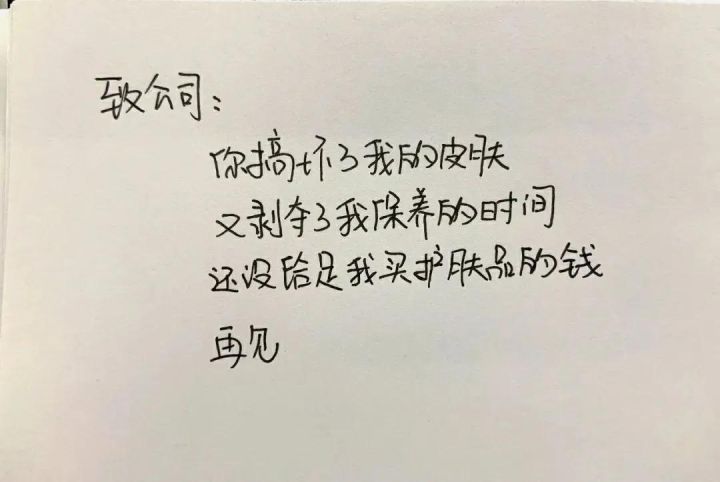 致公司：
你搞坏了我的皮肤
又剥夺了我保养的时间
还没给足我买护肤品的钱
再见